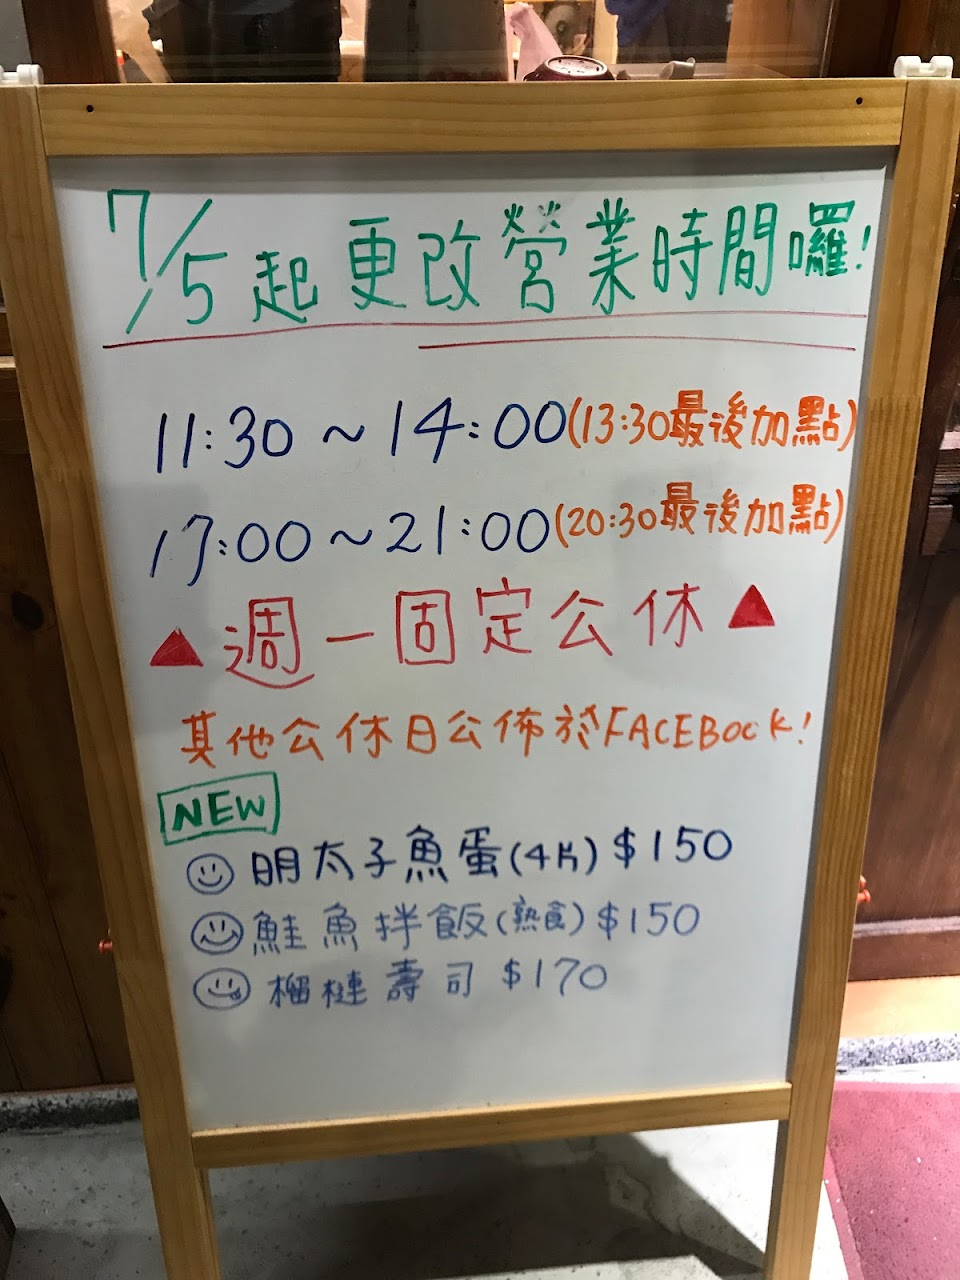 7/5起更改營業時間囉!
11:30～14:00(13:30最後加點)
17:00～21:00(20:30最後加點)
▲週一固定公休▲
其他公休日公佈於FACEBOOK!
NEW
明太子魚蛋(4片)$150
鮭魚拌飯(熟食)$150
榴槤壽司 $170